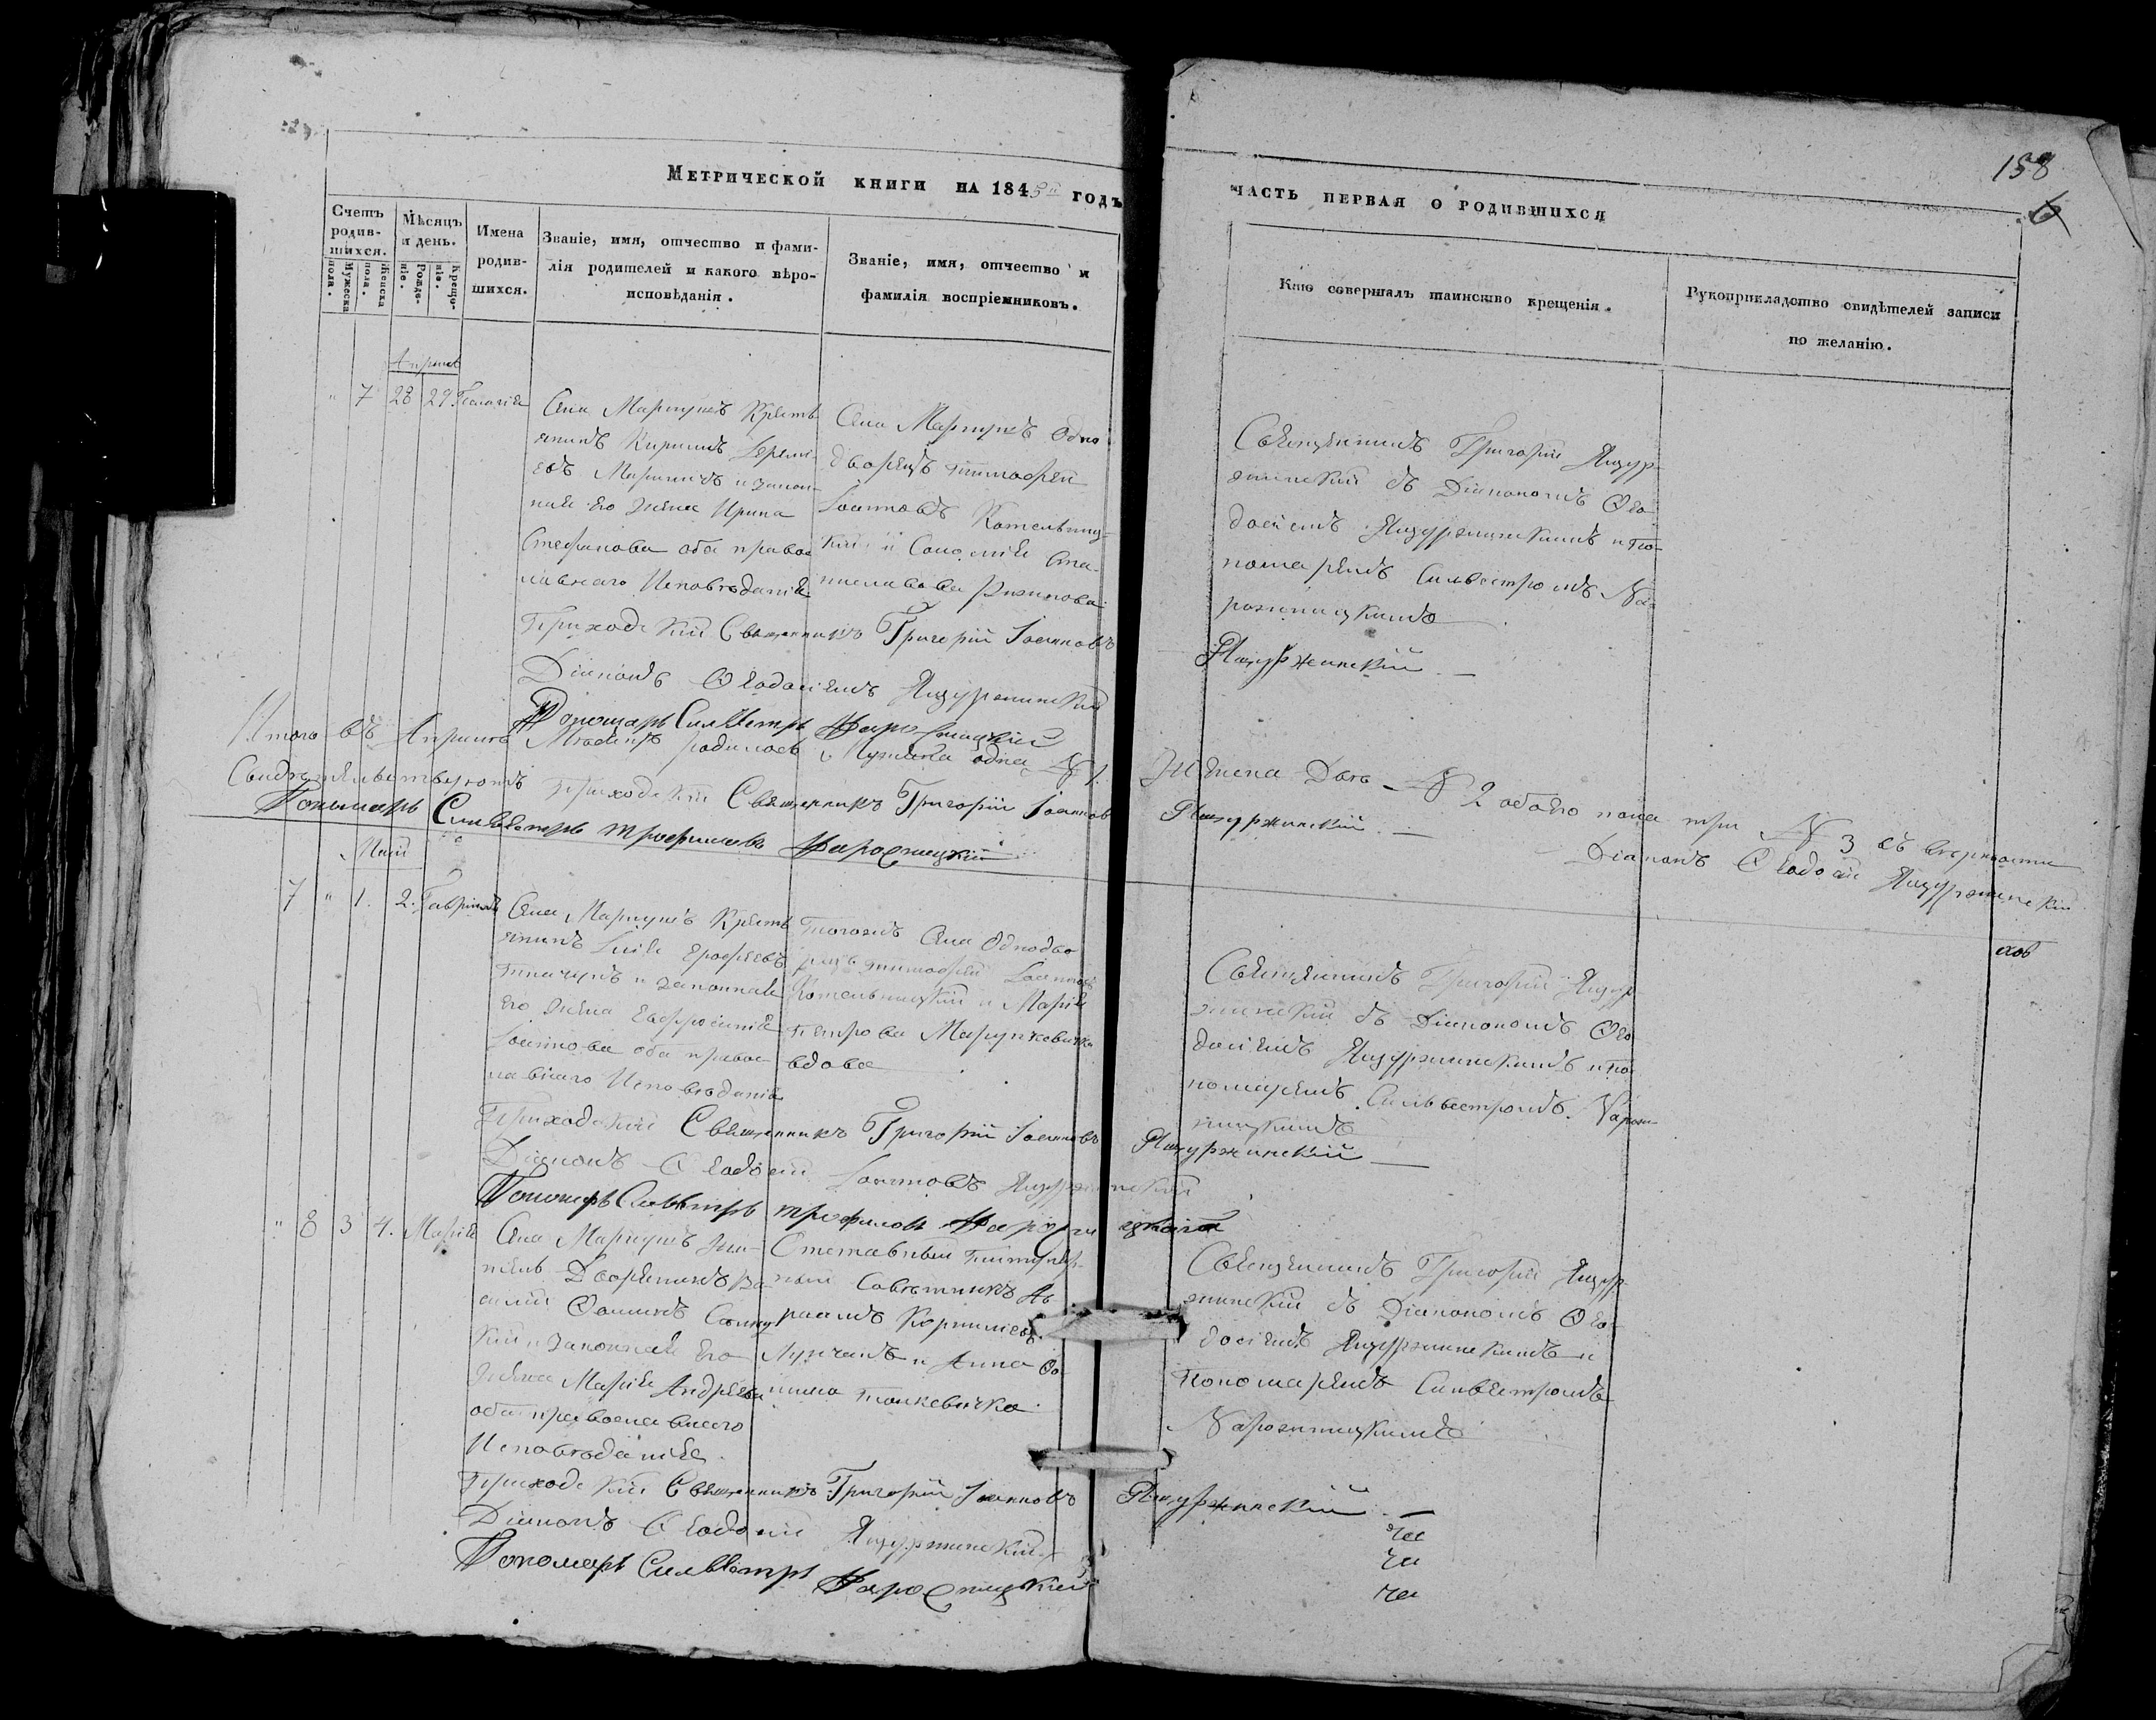 Метрической книги на 1845й годъ
часть первая о родившихся
158
6
Счетъ родив-шихся.
Мужеска пола.
Женска пола.
Мѣсяцъ и день.
Рожде-ніе.
Креще-ніе.
Имена родив-шихся.
Званіе, имя, отчество и фами-
лія родителей и какого вѣро-
исповѣданія.
Званіе, имя, отчество и
фамилія воспріемниковъ.
Кто совершалъ таинство крещенія.
Рукоприкладство свидѣтелей записи
по желанію.
Апрель
" 7 28 29 Пелагія
Села Маркушъ Кресть
янинъ Кириллъ Іереми-
евъ и закон-
ная его жена Ирина
Стефанова оба право
славнаго Исповѣданія
Села Маркушъ Одно
дворецъ Тимофей
Іоанновъ Котельниц-
кій и Соломія Ста-
ниславова
Священникъ Григорій Яцур-
жинскій съ Діакономъ Ѳео-
досіемъ Яцуржинскимъ и по-
номаремъ Сильвестромъ На-
рожницкимъ
Приходскій Священникъ Григорій Іоанновъ Яцуржинскій
Діаконъ Ѳеодосій Яцуржинскій
Пономарь Сильвестръ Нарожницкій
Итого въ Априлѣ Мѣсяцѣ родилось Мужеска одна № 1. Женска Двѣ № 2 обоего пола три № 3 въ вѣрности
Свидѣтельствуютъ Приходскій Священникъ Григорій Іоанновъ Яцуржинскій Діаконъ Ѳеодосій Яцуржинскій
Пономарь Сильвестръ Трофимовъ Нарожницкій
Май
7 " 1. 2. Гавріилъ
Села Маркушъ Кресть
янинъ Илія Ерофеевъ
и законная
его жена Евфросинія
Іоаннова оба право
славнаго Исповѣданія
Тогожъ Села Однодво
рецъ Тимофей Іоанновъ
Котельницкій и Марія
Петрова
вдова
Священникъ Григорій Яцур-
жинскій съ Діакономъ Ѳео-
досіемъ Яцуржинскимъ и по-
номаремъ Сильвестромъ Нарож-
ницкимъ
Приходскій Священникъ Григорій Іоанновъ Яцуржинскій
Діаконъ Ѳеодосій Іоанновъ Яцуржинскій
Пономарь Сильвестръ Трофимовъ Нарожницкій
" 8 3 4. Марія
Села Маркушъ жи-
тель Дворянинъ Ва-
силій Ѳоминъ
кій и законная его
жена Марія Андреева
оба православнаго
Исповѣданія
Отставный Титуляр-
ный Совѣтникъ Ав-
раамъ Корниліевъ
и Анна Ѳо-
мина
Священникъ Григорій Яцур-
жинскій съ Діакономъ Ѳео-
досіемъ Яцуржинскимъ и
Пономаремъ Сильвестромъ
Нарожницкимъ
Приходскій Священникъ Григорій Іоанновъ Яцуржинскій
Діаконъ Ѳеодосій Яцуржинскій
Пономарь Сильвестръ Нарожницкій